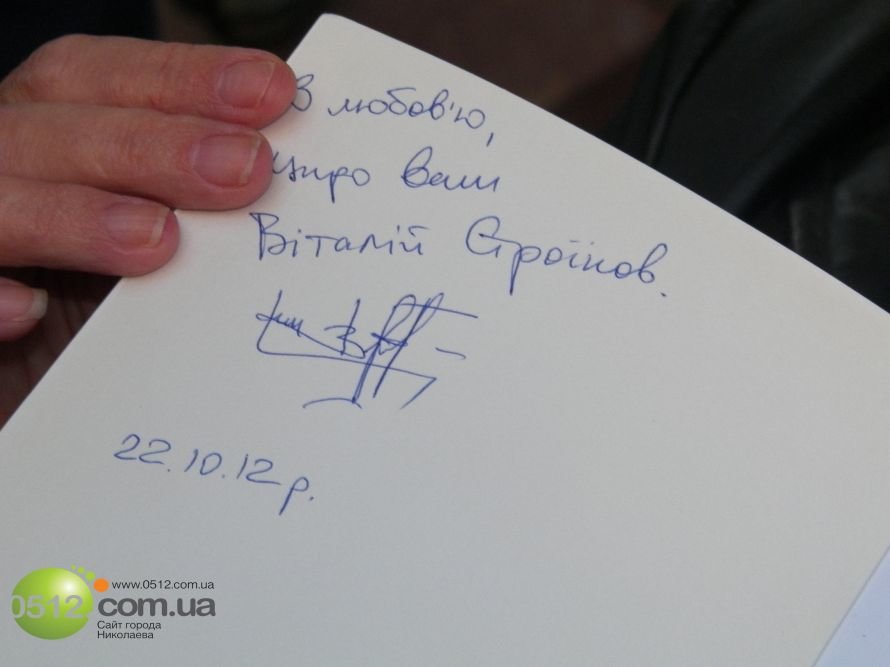 З любов'ю,
щиро ваш
Віталій Строїнов.
22.10.12 р.
www.0512.com.ua
0512.com.ua
Сайт города
Николаева